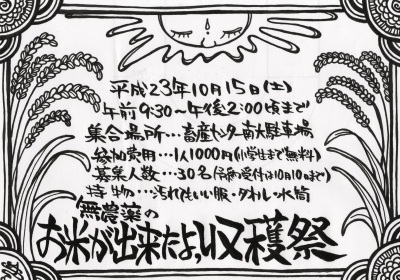 平成23年10月15日(土)
午前9:30～午後2:00頃まで
集合場所…畜産センター南大駐車場
参加費用…1人1000円(小学生まで無料)
募集人数…30名(予約受付は10月10日まで)
持ち物…汚れてもいい服・タオル・水筒
無農薬の
お米が出来たよっ収穫祭